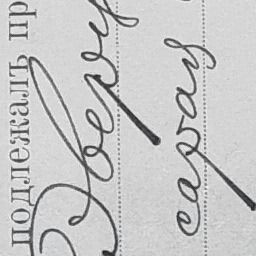 подлежалъ пр
Дверу
сарау